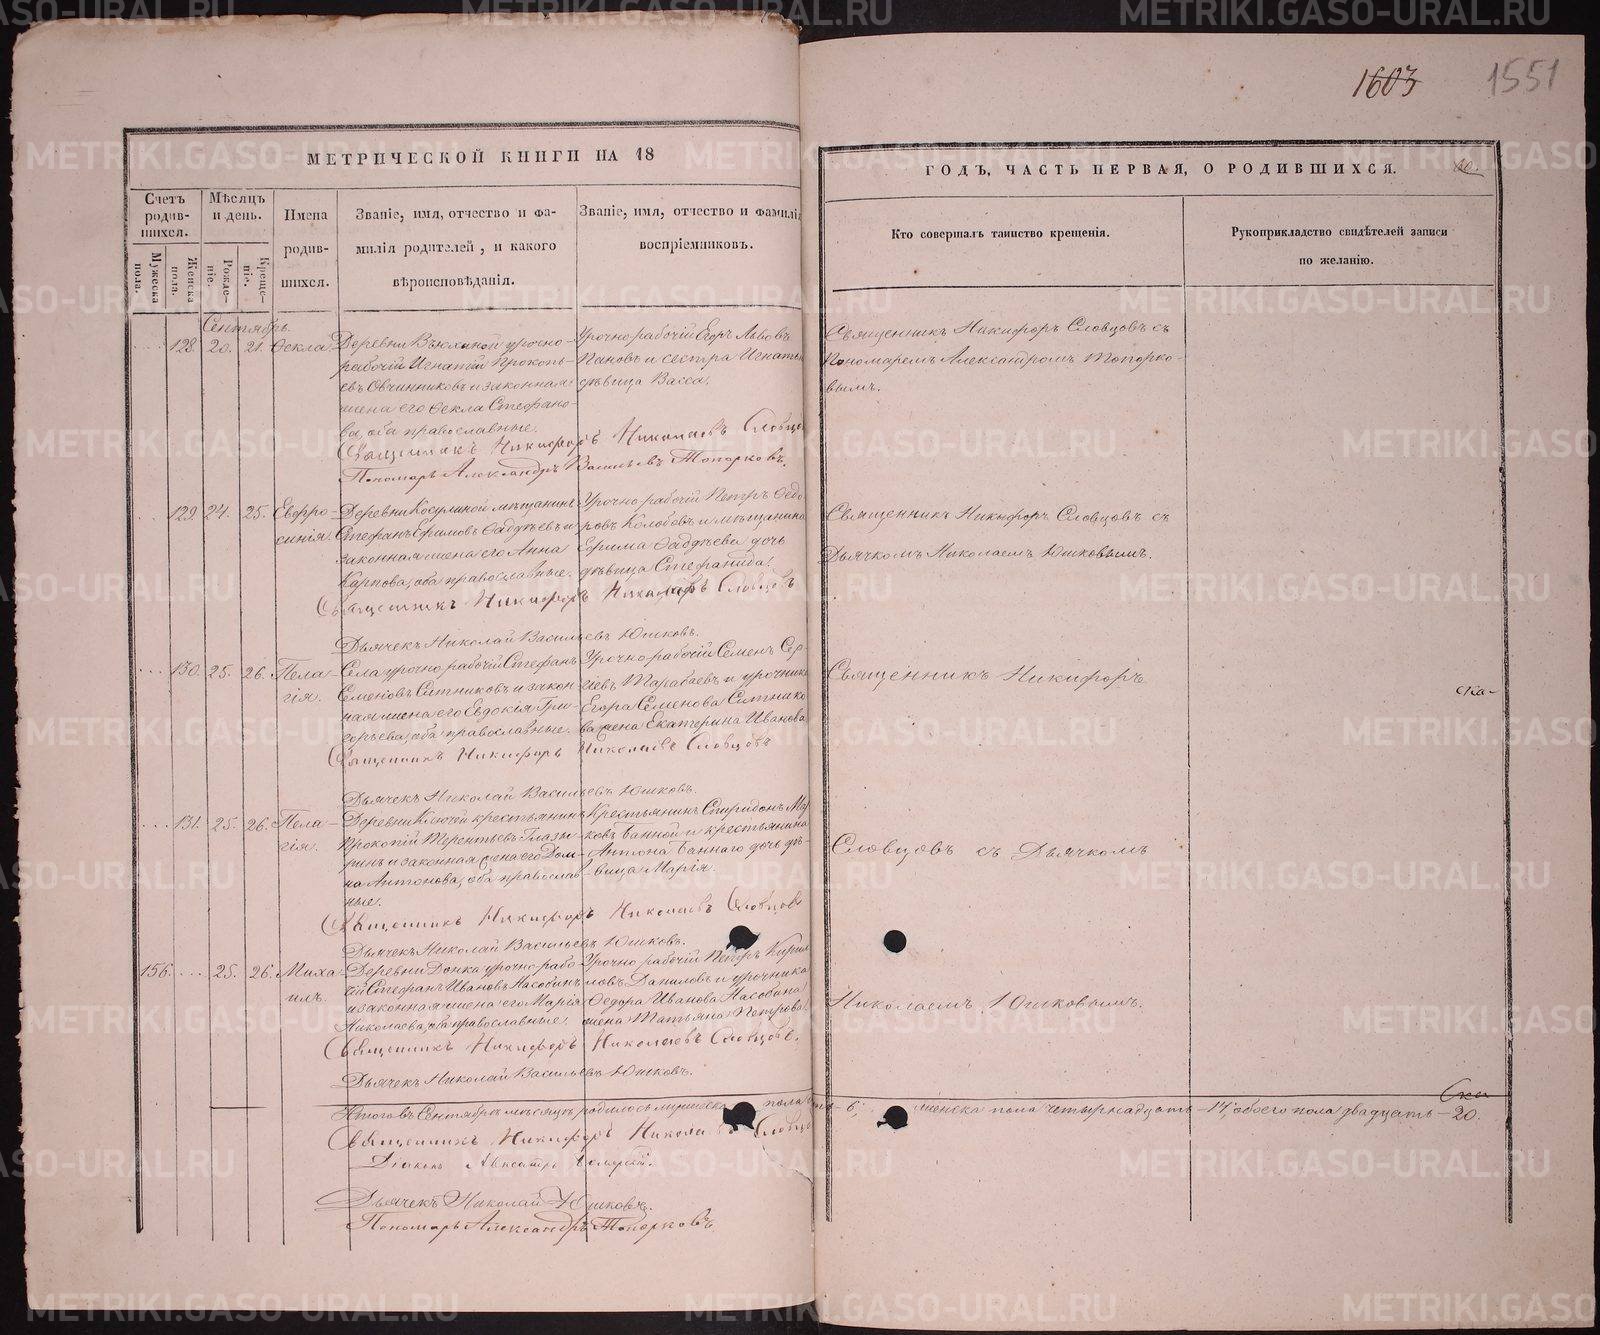 1603
1551
МЕТРИЧЕСКОЙ КНИГИ НА 18
ГОДЪ, ЧАСТЬ ПЕРВАЯ, О РОДИВШИХСЯ.
Счетъ родив-шихся.
Мужеска пола.
Женска пола.
Мѣсяцъ и день.
Рожде-ніе.
Креще-ніе.
Имена родив-шихся.
Званіе, имя, отчество и фа-
милія родителей, и какого
вѣроисповѣданія.
Званіе, имя, отчество и фамилія
воспріемниковъ.
Кто совершалъ таинство крещенія.
Рукоприкладство свидѣтелей записи
по желанію.
Сентябрь.
128. 20. 21. Ѳекла.
урочно-
рабочій Игнатій Прокопь-
евъ Овчинниковъ и законная
жена его Ѳекла Стефано-
ва, оба православные.
Урочно-рабочій Егоръ Львовъ
Пановъ и сестра Игнатья
дѣвица Васса.
Священникъ Никифоръ Словцовъ съ
Пономаремъ Александромъ Топорко-
вымъ.
Священникъ Никифоръ Николаевъ Словцовъ
Пономарь Александръ Васильевъ Топорковъ.
129. 24. 25. Евфро-
синія.
Деревни Косулиной мѣщанинъ
Стефанъ Ефимовъ Ѳаддѣевъ и
законная жена его Анна
Карпова, оба православные.
Урочно-рабочій Петръ Ѳедо-
ровъ Колобовъ и мѣщанина
Ефима Ѳаддѣева дочь
дѣвица Стефанида.
Священникъ Никифоръ Словцовъ съ
Дьячкомъ Николаемъ Юшковымъ.
Священникъ Никифоръ Николаевъ Словцовъ
Дьячекъ Николай Васильевъ Юшковъ.
130. 25. 26. Пела-
гія.
Села урочно рабочій Стефанъ
Семеновъ Ситниковъ и закон-
ная жена его Евдокія Гри-
горьева, оба православные.
Урочно-рабочій Семенъ Сер-
гіевъ Тарабаевъ и урочника
Егора Семенова Ситнико-
ва жена Екатерина Иванова
Священникъ Никифоръ
Священникъ Никифоръ Николаевъ Словцовъ
Дьячекъ Николай Васильевъ Юшковъ.
131. 25. 26. Пела-
гія.
Деревни Ключей крестьянинъ
Прокопій Терентьевъ Глазы-
ринъ и законная жена его Дом-
на Антонова, оба православ-
ные.
Крестьянинъ Спиридонъ Мар-
ковъ Банной и крестьянина
Антона Баннаго дочь дѣ-
вица Марія.
Словцовъ съ Дьячкомъ
Священникъ Никифоръ Николаевъ Словцовъ
Дьячекъ Николай Васильевъ Юшковъ.
156. 25. 26. Миха-
илъ.
Деревни урочно рабо-
чій Стефанъ Ивановъ Насобинъ
и законная жена его Марія
Николаева, оба православные.
Урочно рабочій Петръ Кирил-
ловъ Даниловъ и урочника
Ѳедора Иванова Насобина
жена Татьяна Петрова.
Николаемъ Юшковымъ.
Священникъ Никифоръ Николаевъ Словцовъ.
Дьячекъ Николай Васильевъ Юшковъ.
Итого въ Сентябрѣ мѣсяцѣ родилось мужеска пола 6; женска пола четырнадцать – 14; обоего пола двадцать – 20.
Священникъ Никифоръ Николаевъ Словцовъ
Дьячекъ Николай Юшковъ.
Пономарь Александръ Топорковъ
METRIKI.GASO-URAL.RU